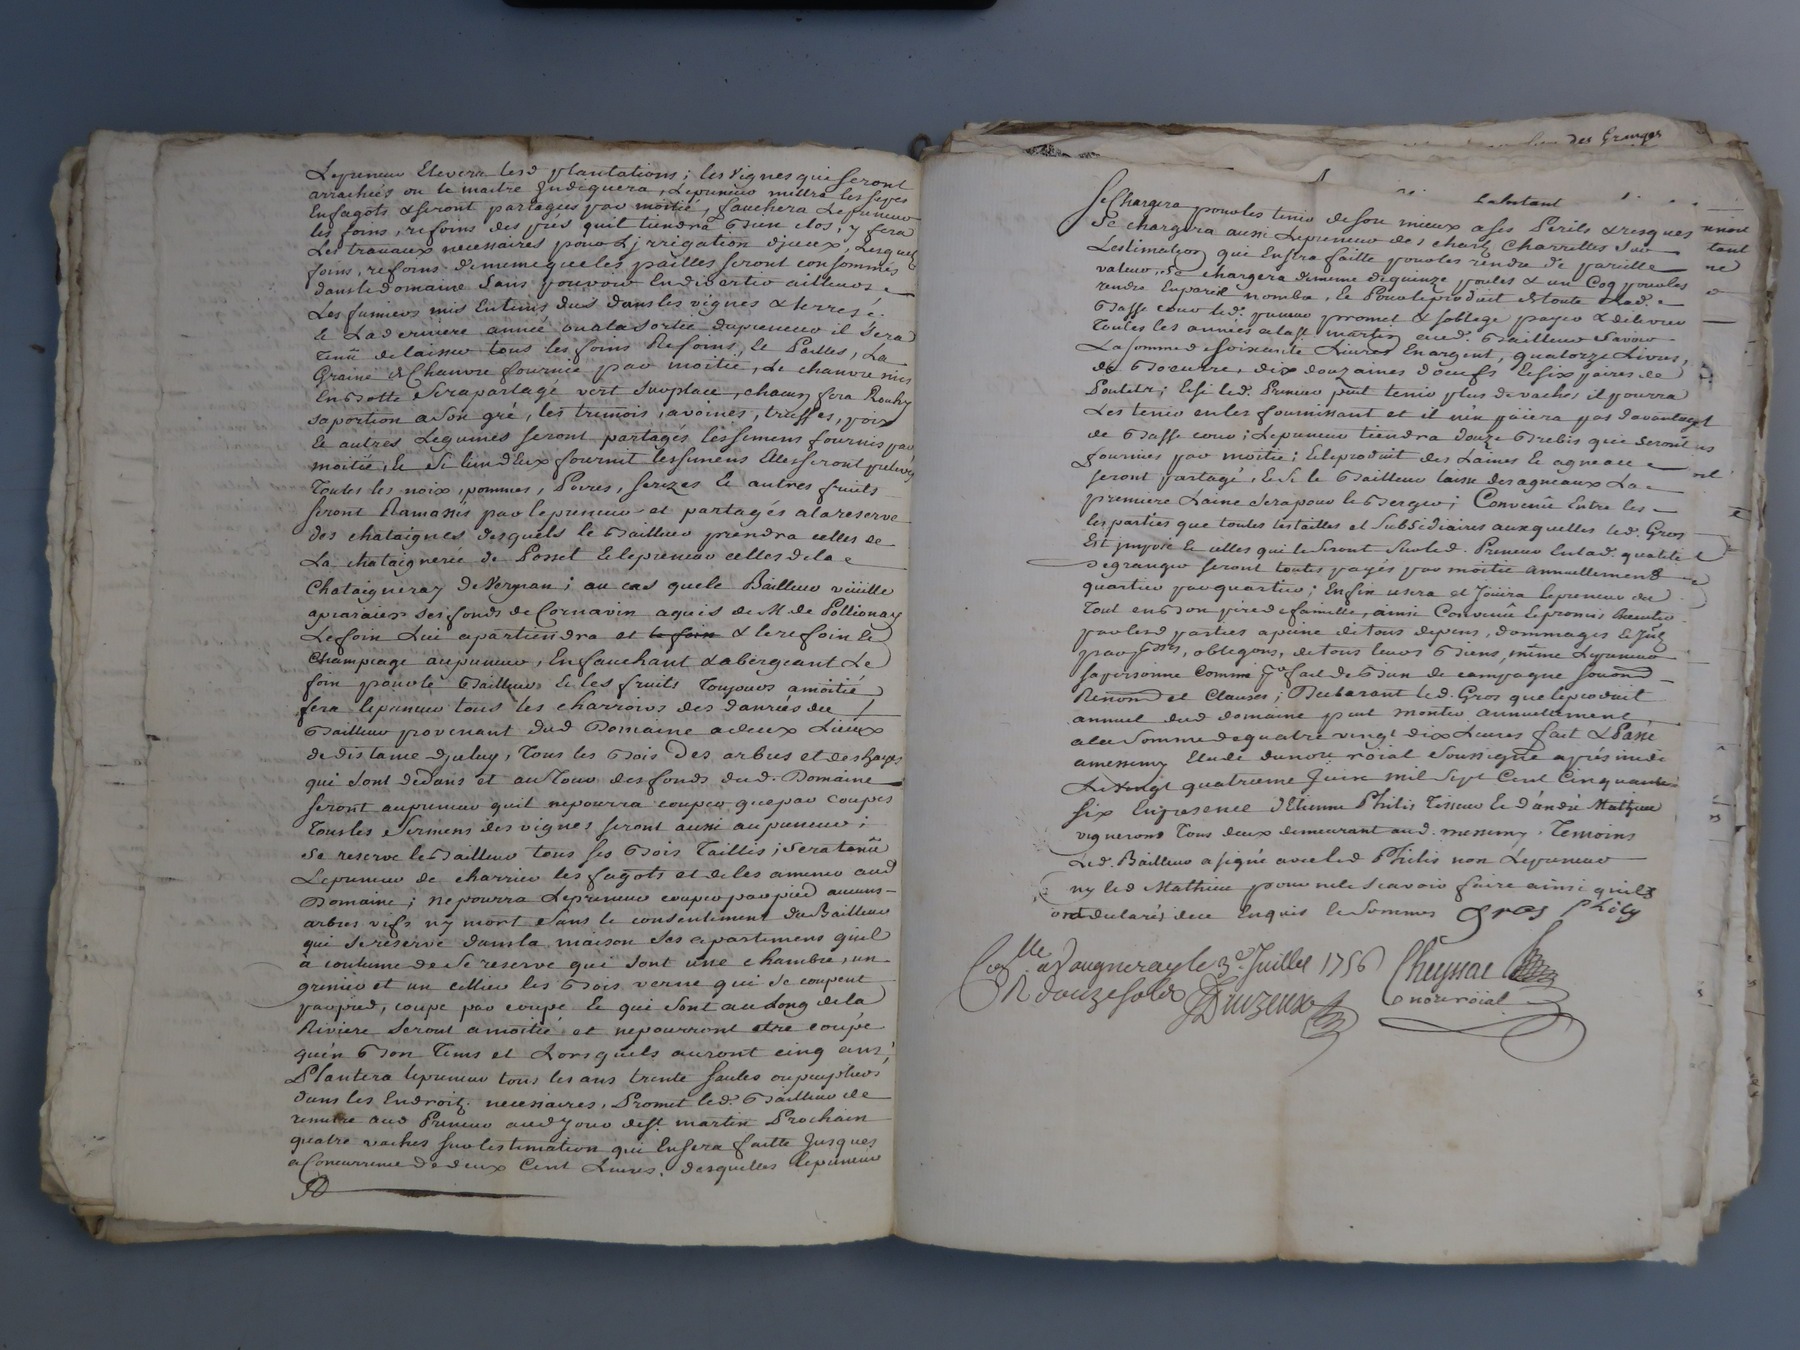 Lepreneur Elevera lesd plantations ; les vignes qui seront
arrachées ou le maitre Indiquera, Lepreneur mettra les seps
En fagots & seront partagés par moitié, fauchera Lepreneur
les foins, refoins des prés quil tiendra Bien clos ; y fera
Les travaux necessaires pour Lirrigation diceux, Lesquels
foins, refoins de meme que les pailles seront consommés
dans le domaine sans pouvoir En divertir ailleurs
Les fumiers mis En tems dus dans les vignes & terres
& La derniere année ou a la sortie du preneur il sera
tenû de laisser tous les foins Refoins, & Pailles, La
Graine de Chanvre fournie par moitié, Le chanvre mis
En Botte sera partagé vert sur place, chacun fera Rouhir
sa portion a son gré, les tremois, avoines, truffes, poix
& autres Legumes seront partagés les semens fournis par
moitié, & si lun dEux fournit les semens Elles seront prelevées
Toutes les noix, pommes, Poires, serizes & autres fruits
seront Ramassés par lepreneur et partagés a la reserve
des chataignes desquels le Bailleur prendra celles de
La chataigneriê de Posset & lepreneur celles de la
Chataigneray de Verman ; au cas que le Bailleur veüille
apraiaer ses fonds de Cornavin aquis de M. de Pollionay
Le foin Lui apartiendra et le foin & le refoin &
Champeage au preneur, En fauchant & abergeant Le
foin pour le Bailleur & les fruits Toujours a moitié
fera lepreneur tous les charrois des danrées du
Bailleur provenant dud Domaine a deux Lieues
de distance diceluy, Tous les Bois Des arbres et des hayes
qui sont dedans et au Tour des fonds dud. Domaine
seront au preneur quil ne pourra couper que par coupes
Tous les sermens des vignes seront aussi au preneur ;
se reserve le Bailleur tous ses Bois Taillis ; sera tenû
Lepreneur de charrier les fagots et de les amener aud
Domaine ; ne pourra Lepreneur couper par pied aucuns
arbres vifs ny mort sans le consentement du Bailleur
qui se reserve dans la maison ses apartemens quil
à coutume de se reserve qui sont une chambre, un
grenier et un cellier les Bois verne qui se coupent
par pied, coupe par coupe & qui sont au Long de la
Riviere seront a moitié et ne pourront etre coupé
quen Bon tems et Lorsquels auront cinq ans,
Plantera lepreneur tous les ans trente saules ou peupliers
dans les Endroits necessaires, Promet led. Bailleur de
remettre aud Preneur aud Jour de St. martin Prochain
quatre vaches sur lestimation qui En sera faitte Jusques
a Concurrence de deux Cent Livres, desquelles lepreneur
des Granges
Labutant
se Chargera pour les tenir de son mieux a ses Perils & resques
se chargera aussi Lepreneur des chars Charrettes sur
Lestimation qui En sera faitte pour les rendre de pareille
valeur, se chargera de meme de quinze poules & un Coq pour les
rendre En pareil nombre, & Pour le produit de toute lad.
Basse cour led. preneur promet & soblige payer & delivrer
Toutes les années a la St. martin aud. Bailleur savoir
La somme de soixante Livres En argent, quatorze Livres
de Boeurre, dix douzaines doeufs & six paires de
Poulets ; & si led. Preneur peut tenir plus de vaches il pourra
Les tenir en les fournissant et il nén païera pas davantage
de Basse cour ; Lepreneur tiendra douze Brebis qui seront
fournies par moitié ; & le produit des Laines & agneaux
seront partagé, & si le Bailleur laisse des agneaux La
premiere Laine sera pour le Berger ; Convenû Entre les
les parties que toutes les tailles et subsidiaires auxquelles led. Gros
Est imposé & celles qui le seront sur led. Preneur En lad. qualité
de granger seront toutes payés par moitié annuellement
quartier par quartier ; Enfin usera et Joüira lepreneur du
Tout en Bon pere de famille, ainsi Convenû & promis Executer
par lesd parties a peine de tous depens, dommages &
par obligons, de tous leurs Biens, même Lepreneur
sa personne Comme fait de Bien de campagne soumons
Renond et Clauses ; Declarant led. Gros que le produit
annuel dud domaine peut monter annuellement
a la somme de quatre vingt dix Livres fait & Passé
a messimy Etude du nore roial soussigné après midi
Le vingt quatrieme Juin mil sept Cent Cinquante
six En presence dEtienne Philis Tisseur & d'andré Mathieu
vignerons Tous deux demeurant aud. messimy Temoins
Led. Bailleur a signé avec led Philis non Lepreneur
ny led Mathieu pour ne le scavoir faire ainsi quils
ont declarés de ce Enquis & Sommes Gros Philis
Conlle a Vaugneray le 3e. Juillet 1756 Cheyssac
R douze sols Druzeux nore roial